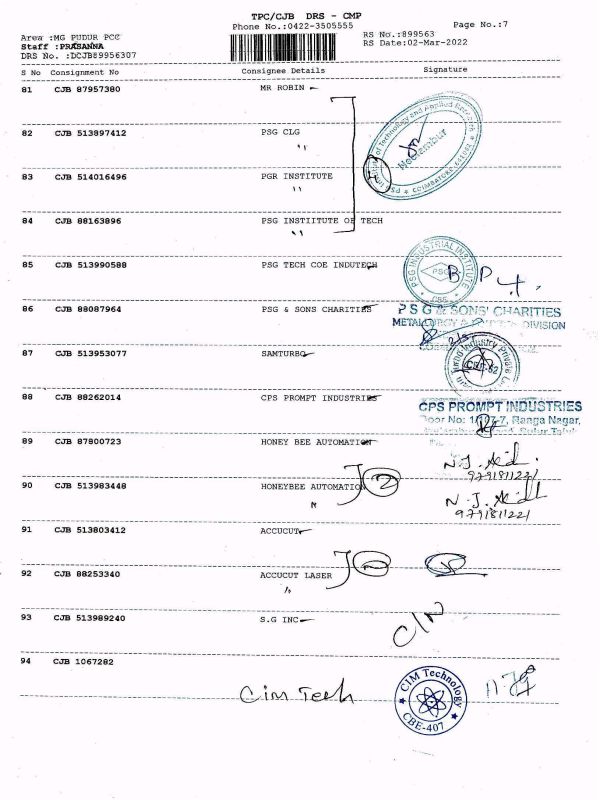 TPC/CJB DRS - CMP
Phone No.:0422-3505555
Page No.:7
Area :MG PUDUR PCC
Staff :PRASANNA
DRS No. :DCJB89956307
RS No.:899563
RS Date:02-Mar-2022
S No Consignment No Consignee Details Signature
81 CJB 87957380 MR ROBIN
82 CJB 513897412 PSG CLG
83 CJB 514016496 PGR INSTITUTE
Neelambur
84 CJB 88163896 PSG INSTIITUTE OF TECH
85 CJB 513990588 PSG TECH COE INDUTECH
PSG INDUSTRIAL INSTITUTE
PSG
CBE
86 CJB 88087964 PSG & SONS CHARITIES
PSG & SONS' CHARITIES
METALLURGY & DIVISION
87 CJB 513953077 SAMTURBO
Turbo Industry Private
88 CJB 88262014 CPS PROMPT INDUSTRIES
CPS PROMPT INDUSTRIES
Door No: 1/107-7, Ranga Nagar,
89 CJB 87800723 HONEY BEE AUTOMATION
N.J.
9791811221
90 CJB 513983448 HONEYBEE AUTOMATION
J 2
N.J.
9791811221
91 CJB 513803412 ACCUCUT
92 CJB 88253340 ACCUCUT LASER
93 CJB 513989240 S.G INC
94 CJB 1067282
Cim Tech
CIM Technology
CBE-407